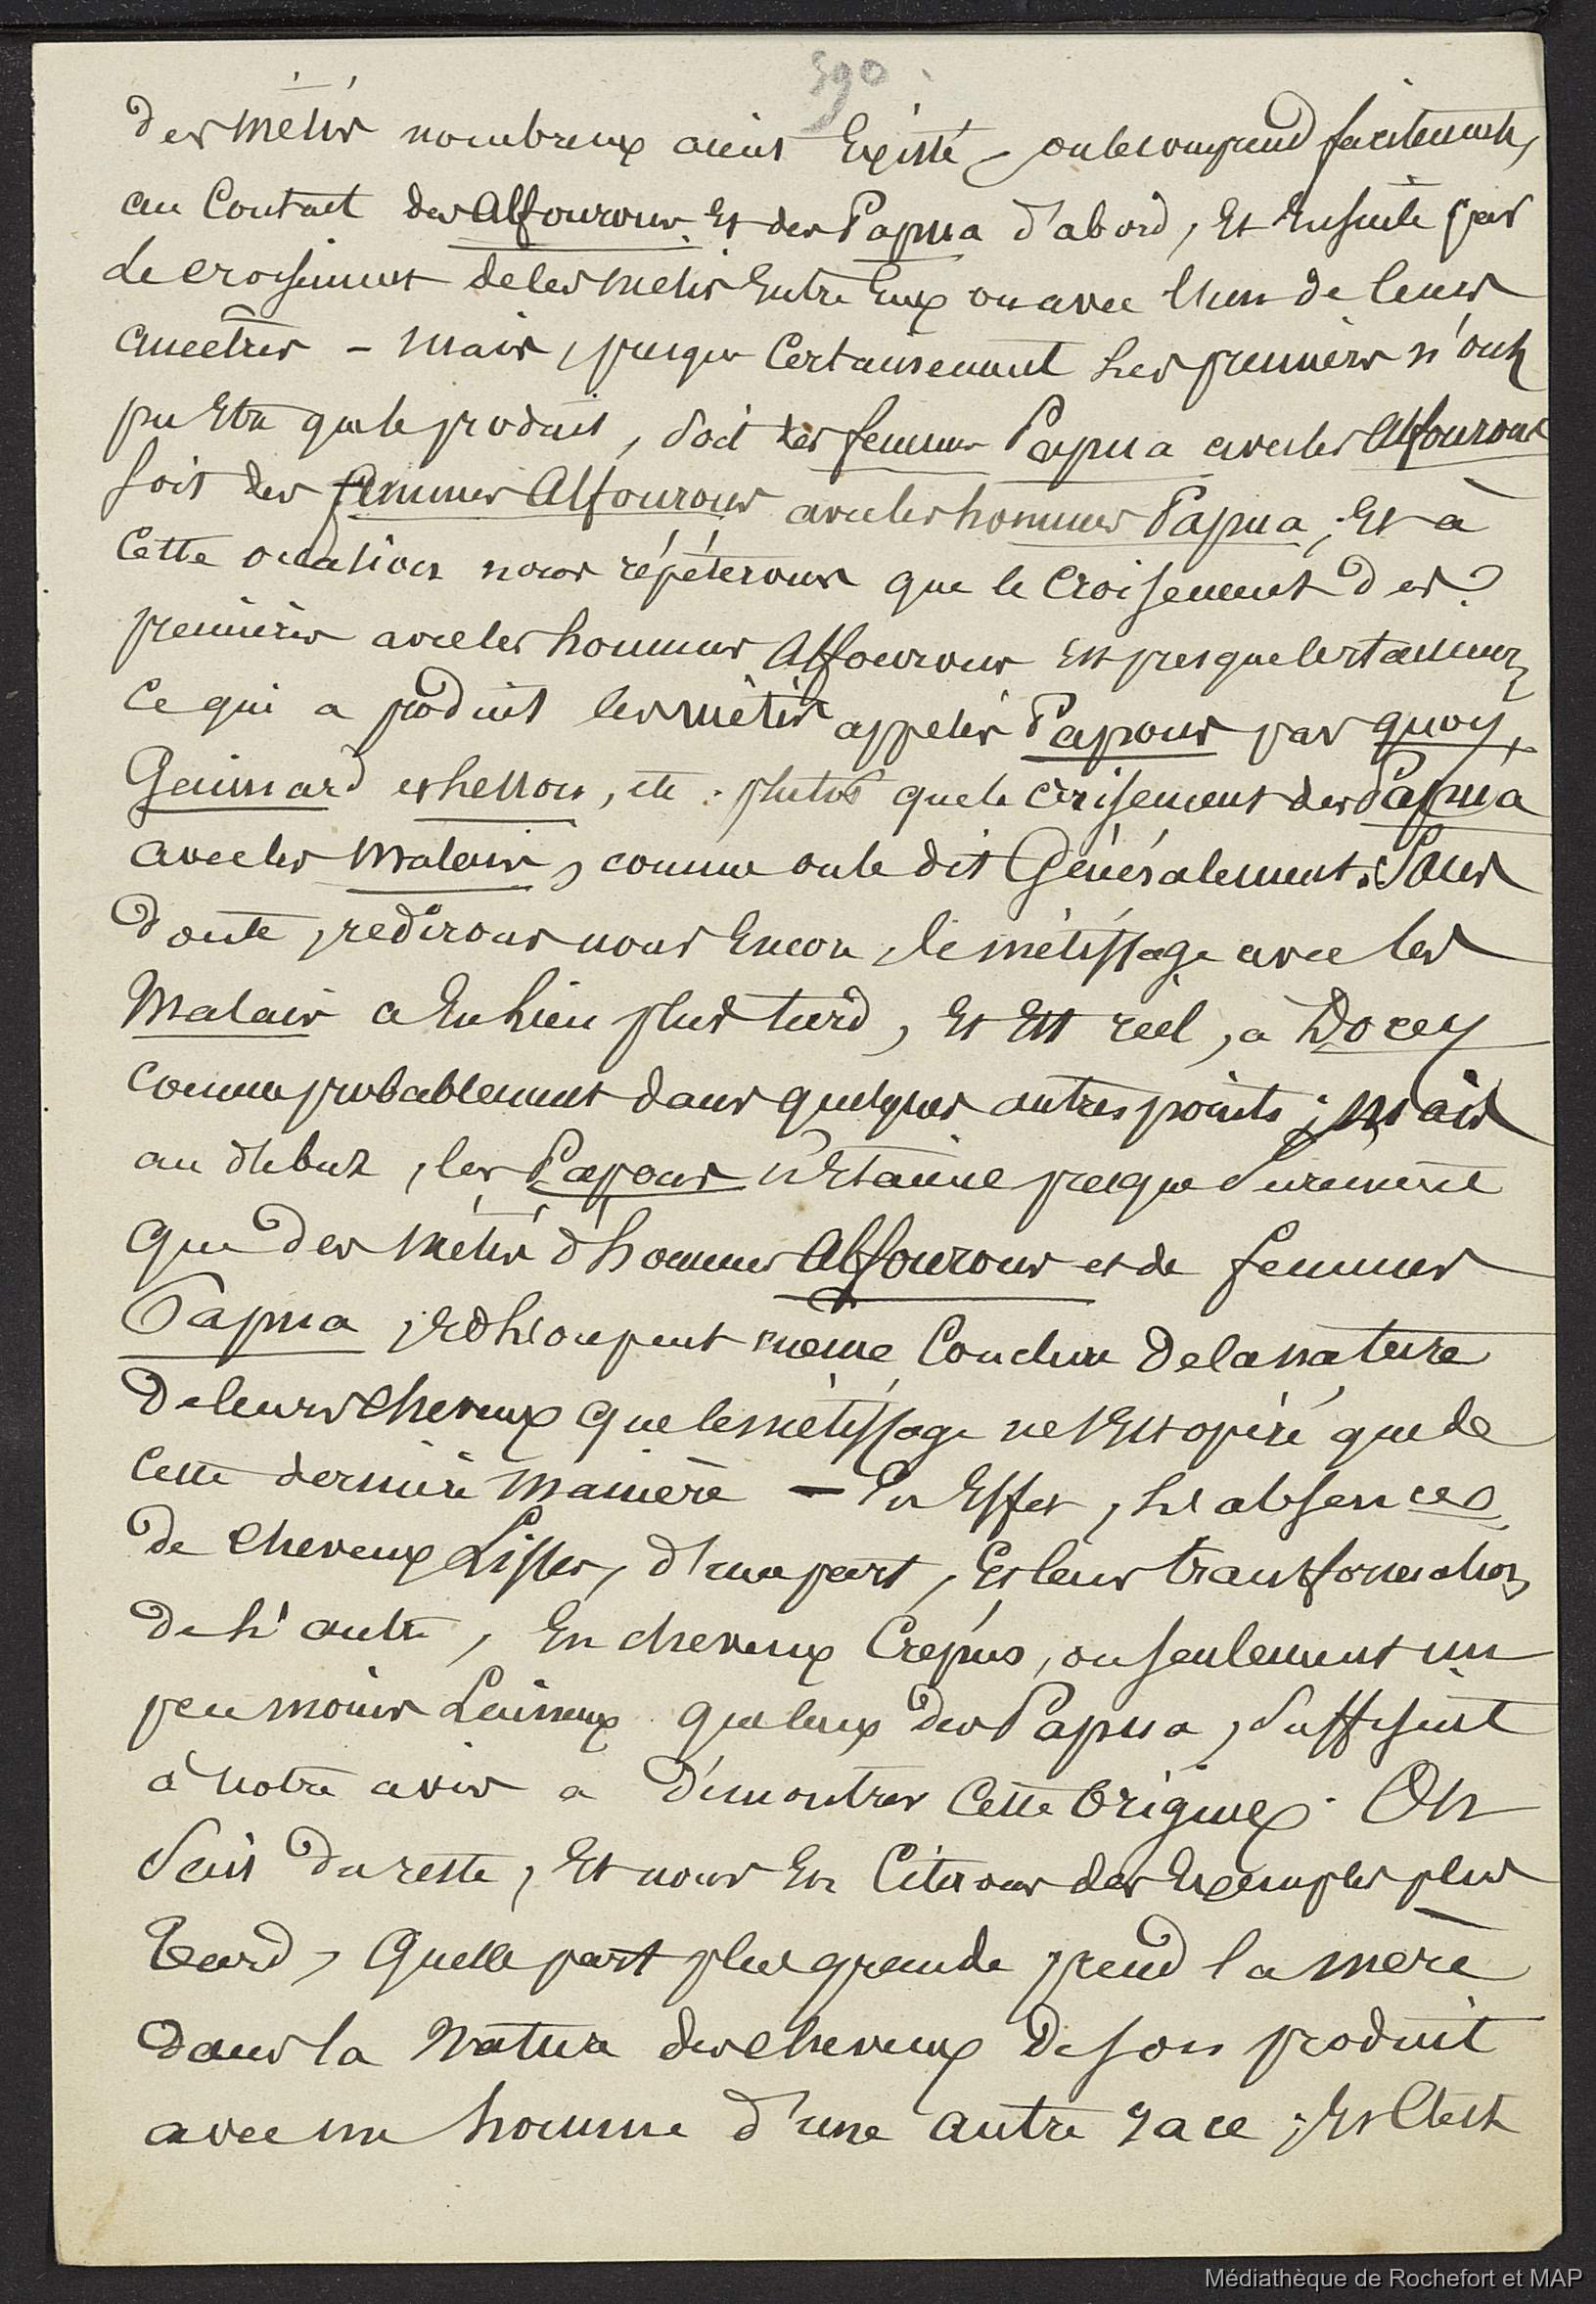 390
des métis nombreux aient Existé, on le comprend facilement,
au Contact des Alfourous Et des Papua d'abord, Et Ensuite par
Le croisement de les métis Entre Eux ou avec l'un de leurs
ancêtres - mais, presque Certainement Les premiers n'ont
pu Etre que le produit, soit des femmes Papua avec les Alfourous
soit des femmes Alfourous avec les hommes Papua, Et à
Cette occasion nous répéterons que le Croisement des
premières avec les hommes Alfourous Est presque Certainement
Ce qui a produit les métis appelés Papous par Quoy,
Gaimard et Lesson, etc. plutôt que le croisement des Papua
avec les Malais, comme on le dit Généralement. Sans
doute, redirons nous Encore, le métissage avec les
Malais a Eu Lieu plus tard, Et Est réel, à Dorey
comme probablement dans quelques autres points ; mais
au début, les Papous n'Etaient presque Surement
que des métis d'hommes Alfourous et de femmes
Papua ; Et L'on peut même Conclure de la nature
de leurs cheveux que le métissage ne s'Est opéré que de
Cette dernière manière - En Effet, Les absences
de Cheveux Lisses, d'une part, Et leur transformation
de L'autre, En cheveux Crépus, ou seulement un
peu moins Laineux que ceux des Papua, Suffisent
à notre avis a démontrer Cette Origine. On
Sait du reste, Et nous En Citerons des Exemples plus
tard, Quelle part plus grande prend la mère
dans la Nature des cheveux de son produit
avec un homme d'une autre race ; Et C'est
Médiathèque de Rochefort et MAP